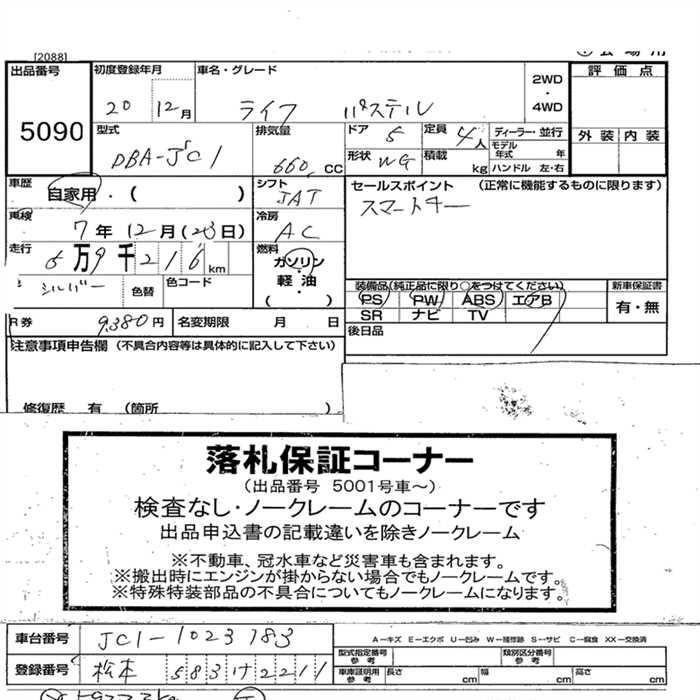 [2088]
出品番号 5090
初度登録年月 20 12月
車名・グレード ライフ パステル
2WD・4WD
評価点
外装 内装
型式 DBA-JC1
排気量 660 CC
ドア 5
定員 4人
ディーラー・並行
モデル年式 年
形状 WG
積載 kg
ハンドル 左・右
車歴 自家用・( )
シフト IAT
セールスポイント (正常に機能するものに限ります)
スマートキー
車検 7年12月(23日)
冷房 AC
走行 5万9千216km
燃料 ガソリン・軽油・( )
シルバー 色替 色コード
装備品(純正品に限り○をつけてください) 新車保証書
PS PW ABS エアB 有・無
SR ナビ TV
R券 9,380円 名変期限 月 日
後日品
注意事項申告欄 (不具合内容等は具体的に記入して下さい)
修復歴 有 (箇所 )
落札保証コーナー
(出品番号 5001号車～)
検査なし・ノークレームのコーナーです
出品申込書の記載違いを除きノークレーム
※不動車、冠水車など災害車も含まれます。
※搬出時にエンジンが掛からない場合でもノークレームです。
※特殊特装部品の不具合についてもノークレームになります。
車台番号 JC1-1023783
A-キズ E-エクボ U-凹み W-補修跡 S-サビ C-腐食 XX-交換済
型式指定番号 参考 類別区分番号 参考
登録番号 松本 583 け 2211
車庫証明用 参考 長さ cm 幅 cm 高さ cm